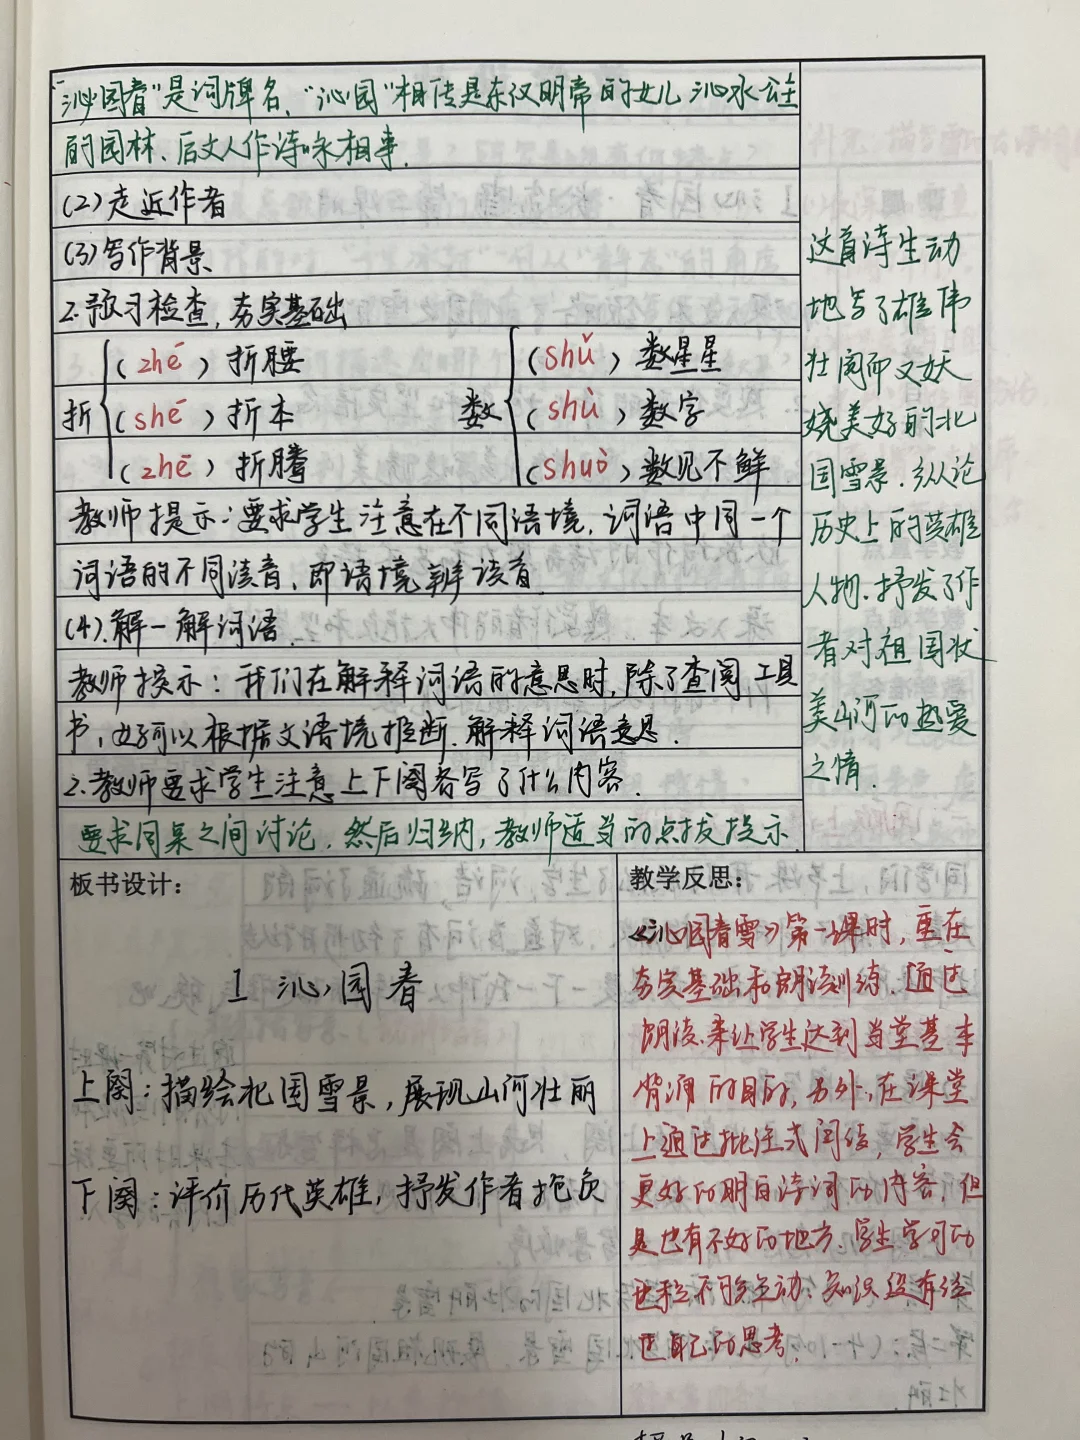 "沁园春"是词牌名、"沁园"相传是东汉明帝的女儿沁水公主
的园林、后文人作诗咏相事.
(2)走近作者
(3)写作背景
2.预习检查,夯实基础
(zhé)折腰
折 (shé)折本
(zhē)折腾
(shǔ)数星星
数 (shù)数字
(shuò)数见不鲜
教师提示:要求学生注意在不同语境,词语中同一个
词语的不同读音、即语境辨读音
(4).解一解词语
教师提示:我们在解释词语的意思时,除了查阅工具
书,也可以根据文语境推断.解释词语意思.
2.教师要求学生注意上下阕各写了什么内容.
要求同桌之间讨论.然后归纳,教师适当的点拨提示.
这首诗生动
地写了雄伟
壮阔而又妖
娆美好的北
国雪景.纵论
历史上的英雄
人物.抒发了作
者对祖国状
美山河的热爱
之情.
板书设计:
1 沁园春
上阕:描绘北国雪景,展现山河壮丽
下阕:评价历代英雄,抒发作者抱负
教学反思:
《沁园春雪》第一课时,重在
夯实基础和朗读训练.通过
朗读.来让学生达到当堂基本
背诵的目的,另外,在课堂
上通过批注式阅读,学生会
更好的明白诗词的内容,但
是也有不好的地方.学生学习的
过程不够生动;知识没有经
过自己的思考.